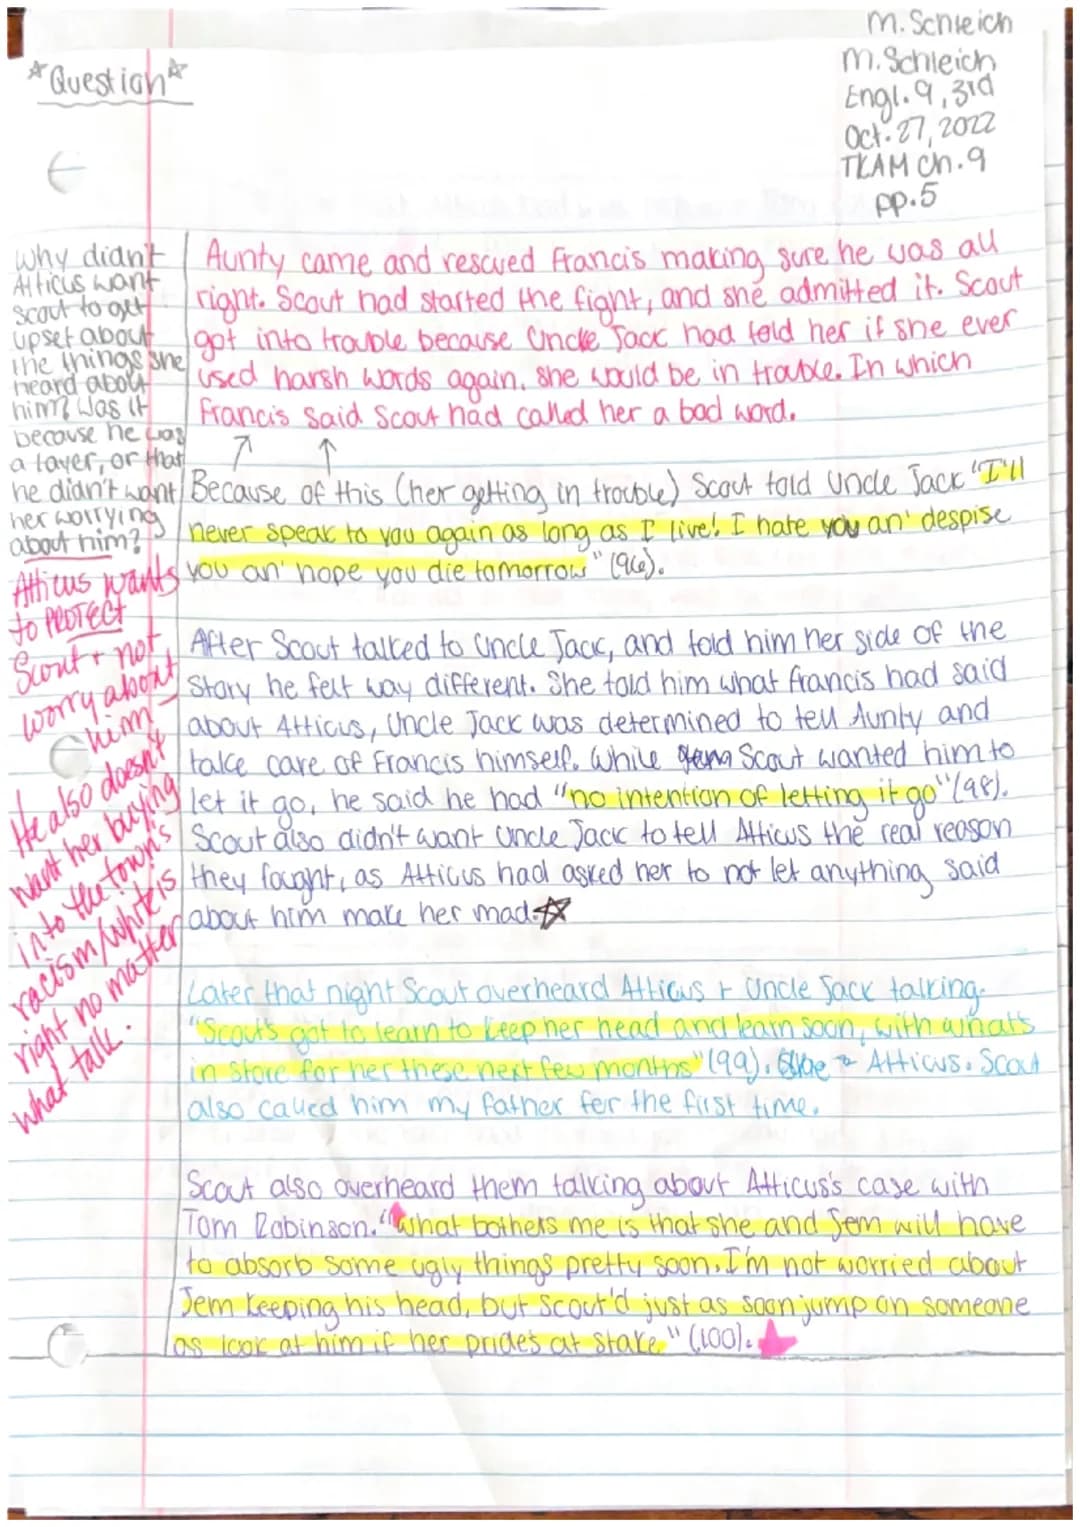 M. Schleich
M. Schleich
Engl. 9, 3rd
Oct. 27, 2022
TKAM Ch. 9
pp. 5
*Question*
Why didn't
Atticus want
Scout to get
upset about
the things she
heard about
him? Was it
because he was
a layer, or that
he didn't want
her worrying
about him?
Atticus wants
to PROTECT
Scout + not
worry about
him -
He also doesn't
want her buying
into the town's
racism/white is
right no matter
what talk.
Aunty came and rescued Francis making sure he was all
right. Scout had started the fight, and she admitted it. Scout
got into trouble because Uncle Jack had told her if she ever
used harsh words again, she would be in trouble. In which
Francis said Scout had called her a bad word.
Because of this (her getting in trouble) Scout told Uncle Jack "I'll
never speak to you again as long as I live! I hate you an' despise
you an' hope you die tomorrow" (96).
After Scout talked to Uncle Jack, and told him her side of the
story he felt way different. She told him what Francis had said
about Atticus, Uncle Jack was determined to tell Aunty and
take care of Francis himself. While Scout wanted him to
let it go, he said he had "no intention of letting it go" (98).
Scout also didn't want Uncle Jack to tell Atticus the real reason
they fought, as Atticus had asked her to not let anything said
about him make her mad.
Later that night Scout overheard Atticus + Uncle Jack talking.
"Scout's got to learn to keep her head and learn soon, with what's
in store for her these next few months" (99). Atticus. Scout
also called him my father for the first time.
Scout also overheard them talking about Atticus's case with
Tom Robinson. "What bothers me is that she and Jem will have
to absorb some ugly things pretty soon. I'm not worried about
Jem keeping his head, but Scout'd just as soon jump on someone
as look at him if her prides at stake" (100).